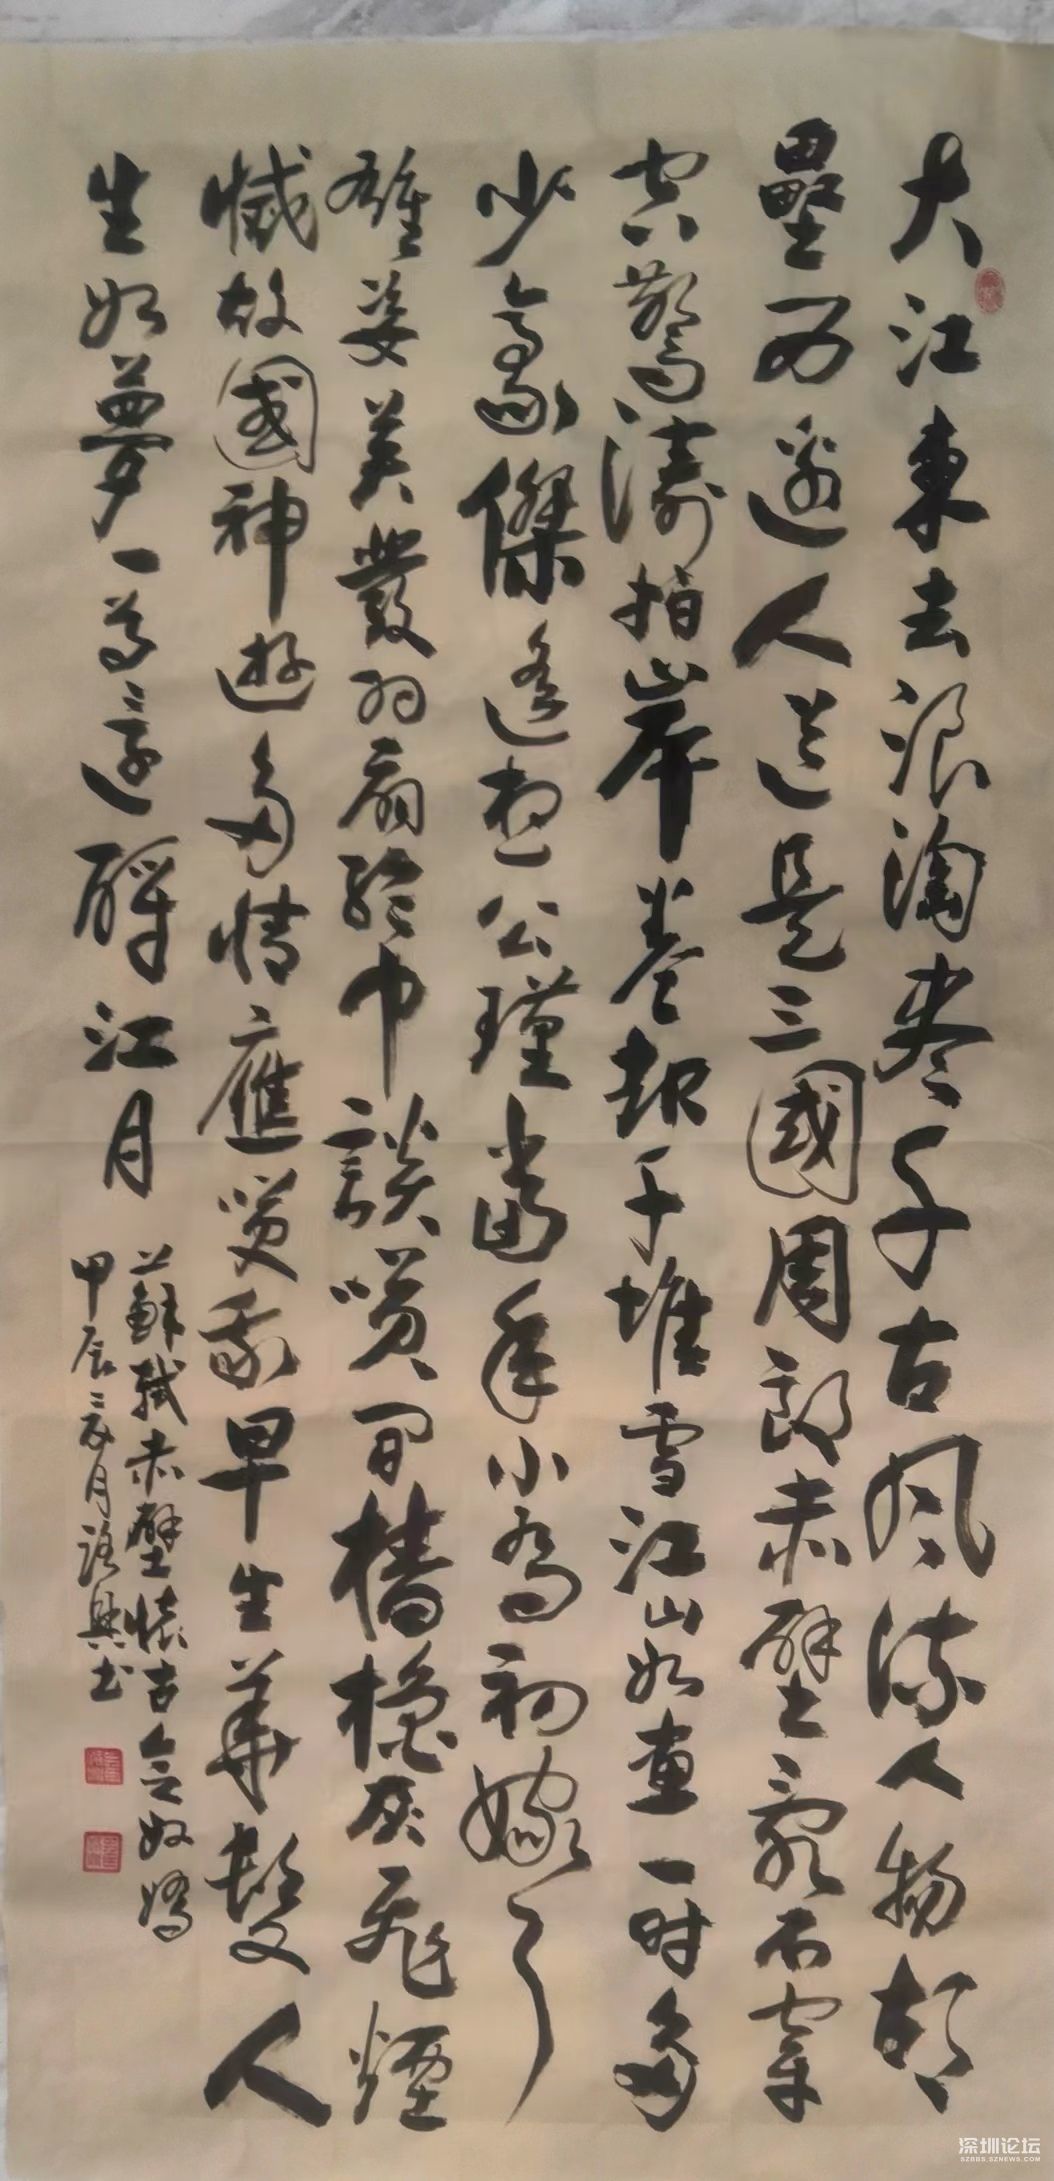 大江東去浪淘盡千古風流人物故
壘西邊人道是三國周郎赤壁亂石穿
空驚濤拍岸卷起千堆雪江山如畫一時多
少豪傑遙想公瑾當年小喬初嫁了
雄姿英發羽扇綸巾談笑間檣櫓灰飛煙
滅故國神遊多情應笑我早生華髮人
生如夢一尊還酹江月
蘇軾赤壁懷古念奴嬌
甲辰月興書
深圳论坛
SZBBS.SZNEWS.COM